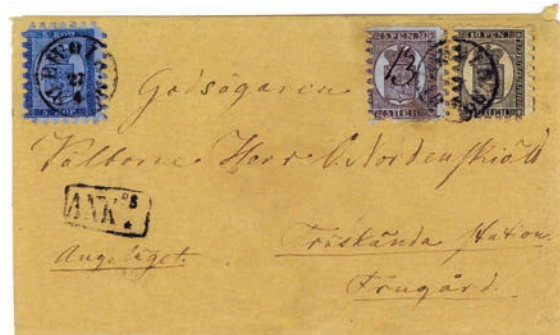 5 KOP.
5 PEN.
10 PEN.
13
27
4
Godsägaren
Välborne Herr O. Nordenskiöld
ANK
Angeläget.
Träskända Station
Frugård.